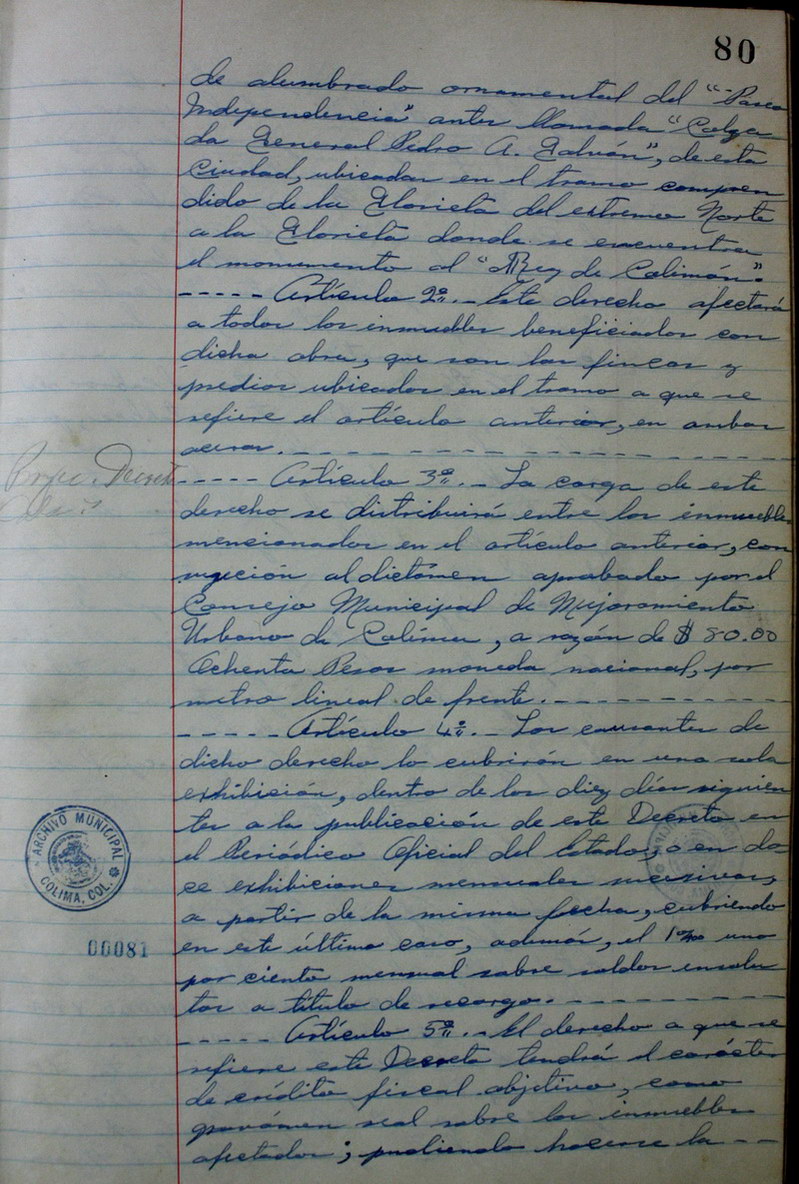 80
de alumbrado ornamental del "Paseo
Independencia" antes llamada "Calza
da General Pedro A. Galván", de esta
Ciudad, ubicadas en el tramo compren
dido de la Glorieta del extremo Norte
a la Glorieta donde se encuentra
el monumento al "Rey de Colimán".
----- Artículo 2º.- Este derecho afectará
a todos los inmuebles beneficiados con
dicha obra, que son las fincas y
predios ubicados en el tramo a que se
refiere el artículo anterior, en ambas
aceras.- - - - - - - - - - - - - -
----- Artículo 3º.- La carga de este
derecho se distribuirá entre los inmuebles
mencionados en el artículo anterior, con
sujeción al dictámen aprobado por el
Consejo Municipal de Mejoramiento
Urbano de Colima, a razón de $ 80.00
Ochenta Pesos moneda nacional, por
metro lineal de frente.- - - - - - - - -
----- Artículo 4º.- Los causantes de
dicho derecho lo cubrirán en una sola
exhibición, dentro de los diez días siguien
tes a la publicación de este Decreto en
el Periódico Oficial del Estado, o en do
ce exhibiciones mensuales sucesivas,
a partir de la misma fecha, cubriendo
en este último caso, además, el 1% uno
por ciento mensual sobre saldos insolu
tos a título de recargo.- - - - - - - - -
----- Artículo 5º.- El derecho a que se
refiere este Decreto tendrá el carácter
de crédito fiscal objetivo, como
gravámen real sobre los inmuebles
afectados; pudiendo hacerse la - -
Decreto
ARCHIVO MUNICIPAL
COLIMA, COL.
00081